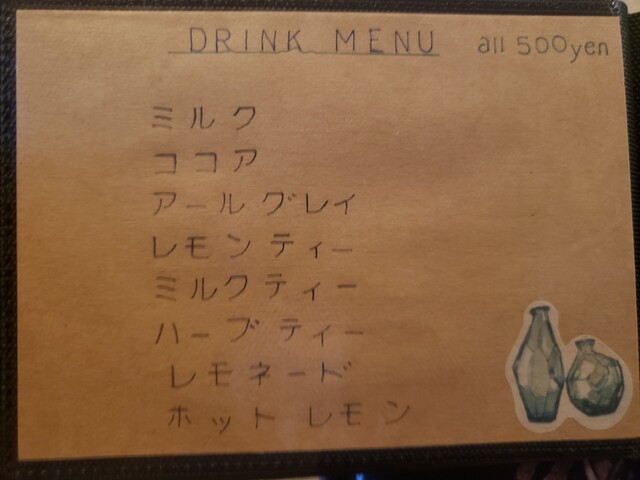 DRINK MENU all 500yen
ミルク
ココア
アールグレイ
レモンティー
ミルクティー
ハーブティー
レモネード
ホットレモン